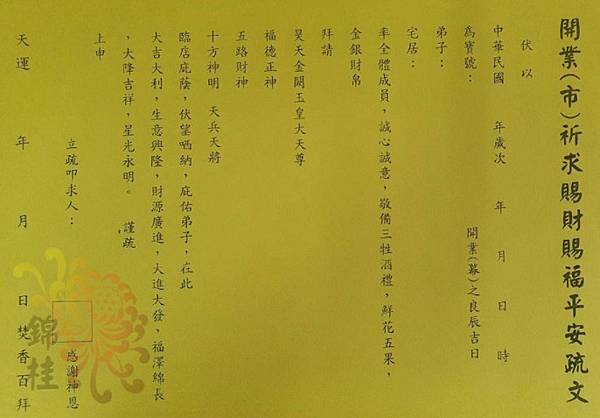 開業(市)祈求賜財賜福平安疏文
伏以
中華民國 年歲次 年 月 日 時
為寶號： 開業(幕)之良辰吉日
弟子：
宅居：
率全體成員，誠心誠意，敬備三牲酒禮，鮮花五果，
金銀財帛
拜請
昊天金闕玉皇大天尊
福德正神
五路財神
十方神明 天兵天將
臨店庇蔭，伏望哂納，庇佑弟子，在此
大吉大利，生意興隆，財源廣進，大進大發，福澤綿長
，大降吉祥，星光永明。 謹疏
上申
立疏叩求人： 感謝神恩
天運 年 月 日焚香百拜
錦桂